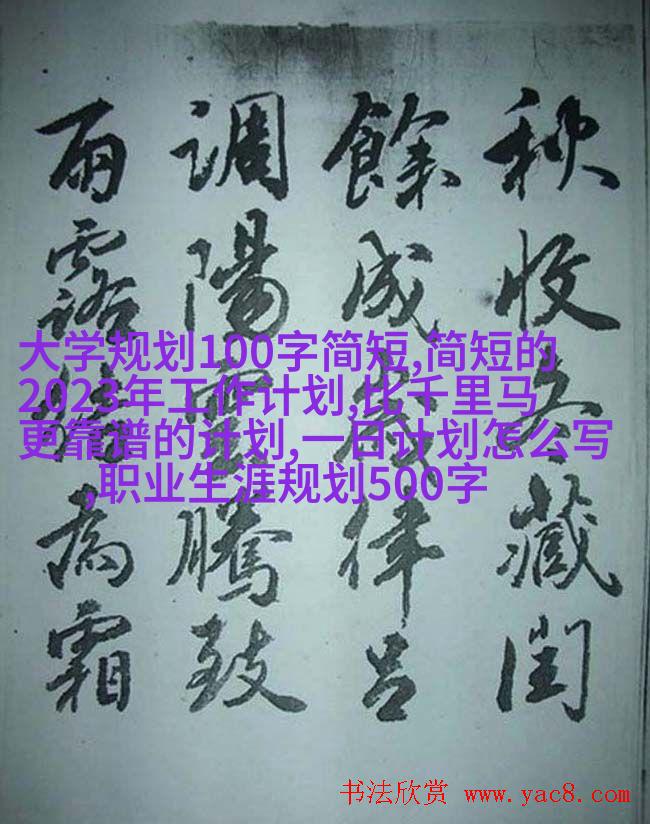 秋收冬藏閏
餘成歲律呂
調陽雲騰致
雨露結為霜
大学规划100字简短,简短的
2023年工作计划,比千里马
更靠谱的计划,一日计划怎么写
,职业生涯规划500字
书法欣赏 www.yac8.com